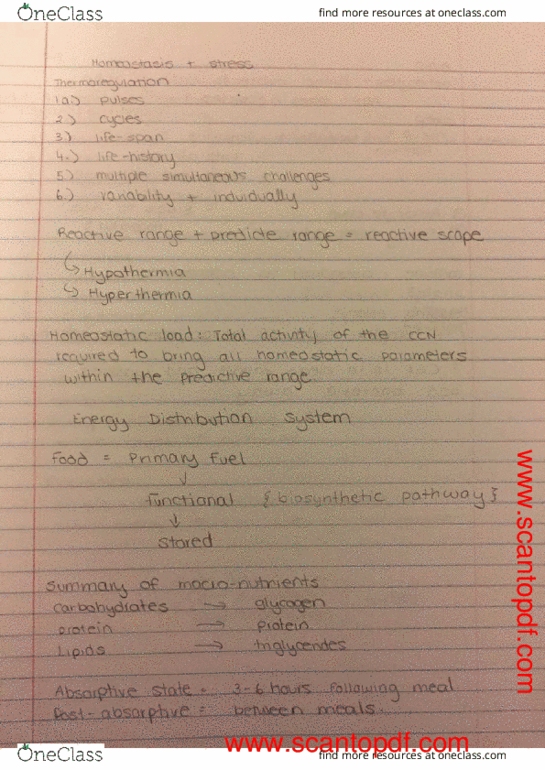 OneClass
find more resources at oneclass.com
Homeostasis + stress
Thermoregulation
1a.) pulses
2.) cycles
3.) life-span
4.) life-history
5.) multiple simultaneous challenges
6.) variability + individually
Reactive range + predicte range = reactive scope
↳ Hypothermia
↳ Hyperthermia
Homeostatic load: Total activity of the CCN
required to bring all homeostatic parameters
within the predictive range.
Energy Distribution System
Food = Primary Fuel
↓
functional {biosynthetic pathway}
↓
stored
Summary of macro-nutrients
carbohydrates → glycogen
protein → protein
Lipids → triglycerides
Absorptive state = 3-6 hours following meal
Post-absorptive = between meals.
www.scantopdf.com
www.scantopdf.com
OneClass
find more resources at oneclass.com